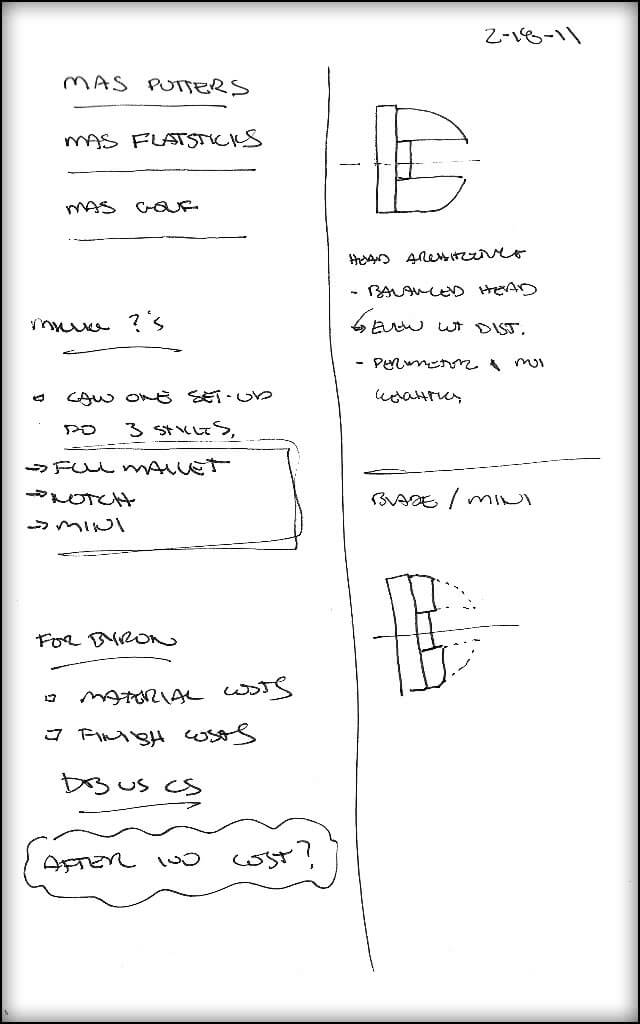 2-18-11
MAS PUTTERS
MAS FLATSTICKS
MAS GOLF
?'s
CAN ONE SET-UP
DO 3 STYLES.
→ FULL MALLET
→ NOTCH
→ MINI
FOR BYRON
MATERIAL COSTS
FINISH COSTS
DB VS CS
AFTER 100 COST?
HEAD ARCHITECTURE
- BALANCED HEAD
EVEN WT DIST.
- PERIMETER & MOI
WEIGHTING
BLADE / MINI